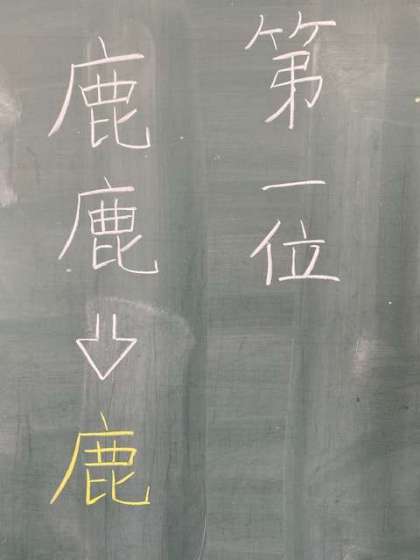 第一位
鹿鹿⇩鹿